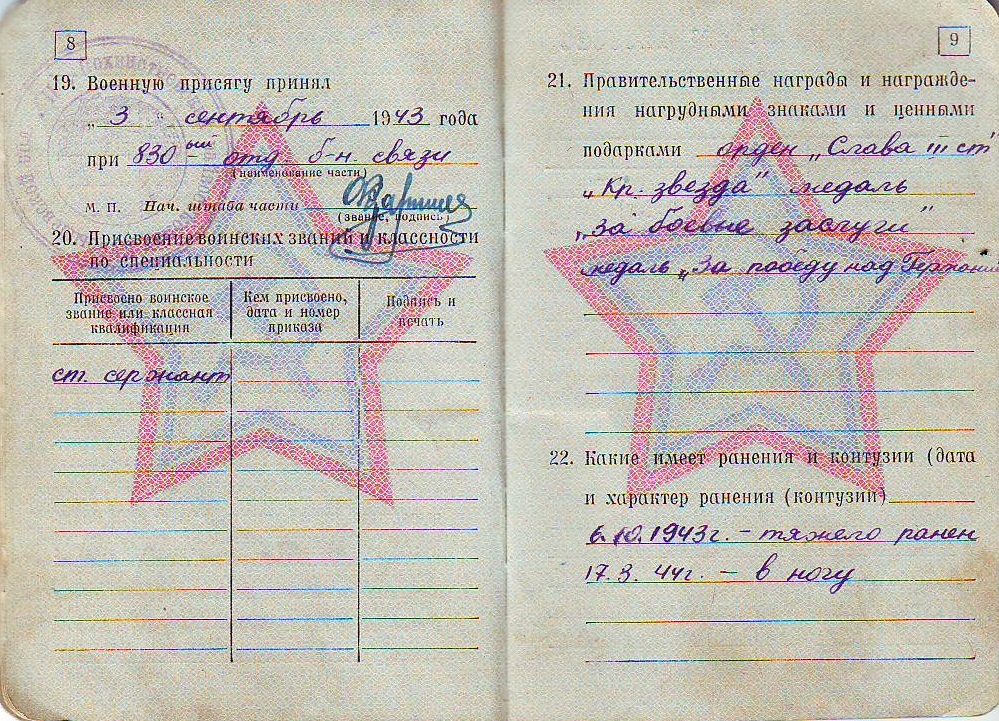 8
19. Военную присягу принял
„ 3 " сентябрь 1943 года
при 830-ый отд. б-н. связи
(наименование части)
М. П. Нач. штаба части
(звание, подпись)
20. Присвоение воинских званий и классности
по специальности
Присвоено воинское звание или классная квалификация
Кем присвоено, дата и номер приказа
Подпись и печать
ст. сержант
9
21. Правительственные награды и награжде-
ния нагрудными знаками и ценными
подарками орден „Слава III ст"
„Кр. звезда" медаль
„за боевые заслуги"
медаль „За победу над Германи
22. Какие имеет ранения и контузии (дата
и характер ранения (контузии)
6.10.1943г. – тяжело ранен
17.3.44г. – в ногу